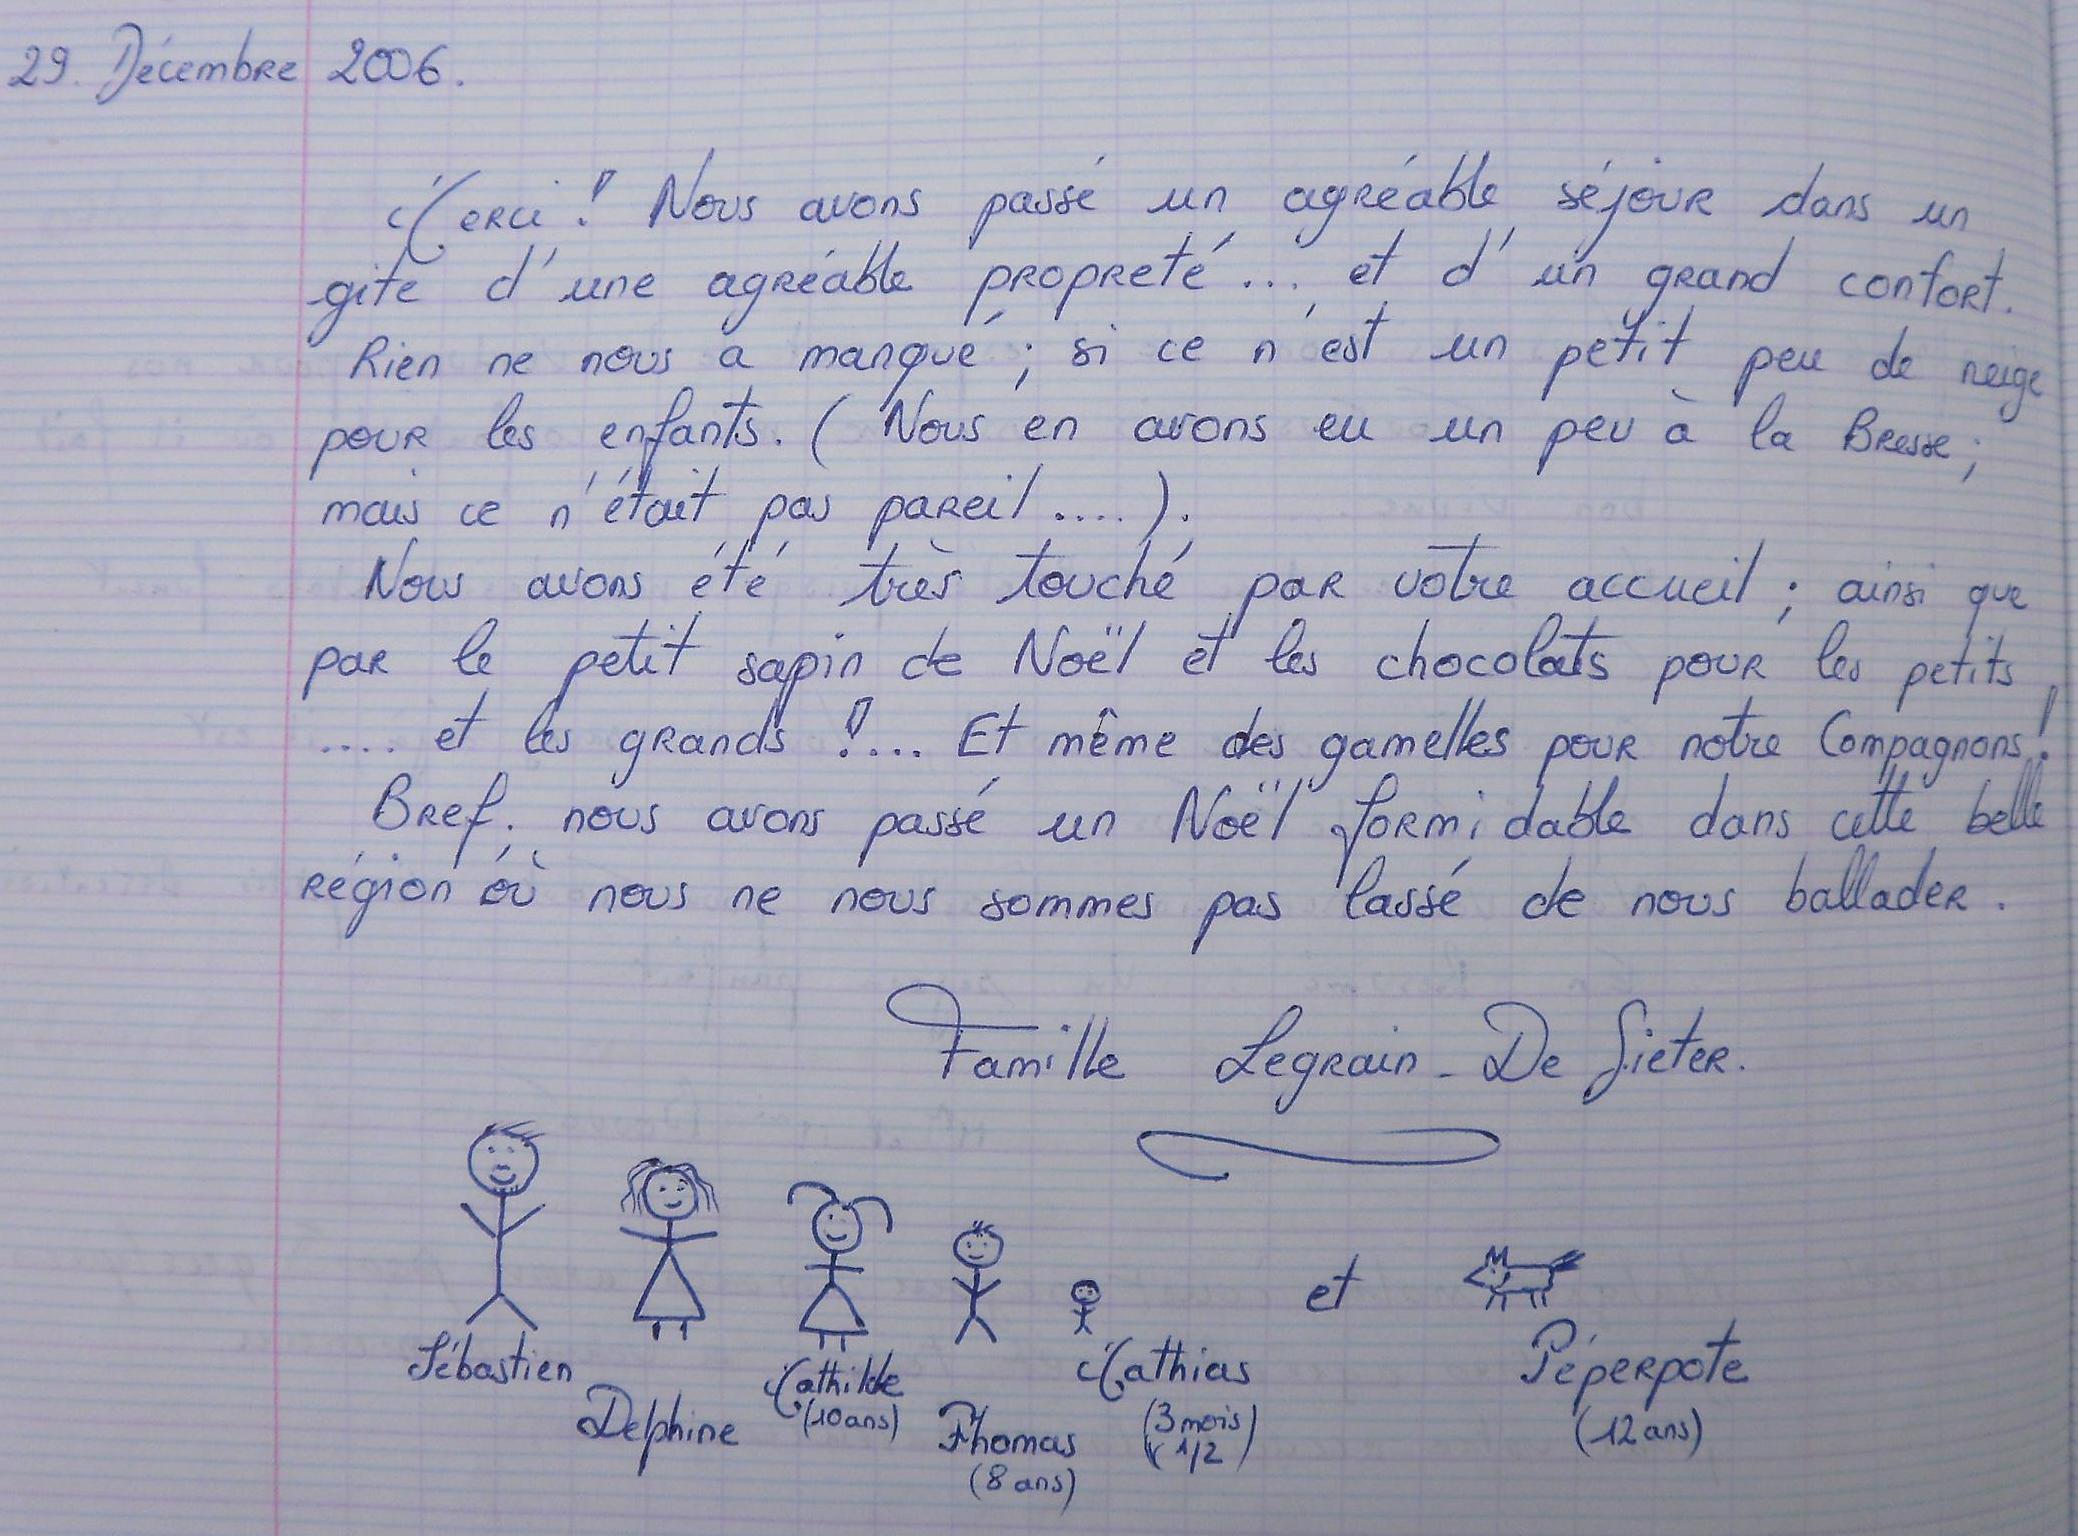 29. Décembre 2006.
Merci ! Nous avons passé un agréable séjour dans un
gite d'une agréable propreté... et d'un grand confort.
Rien ne nous a manqué ; si ce n'est un petit peu de neige
pour les enfants. ( Nous en avons eu un peu à la Bresse ;
mais ce n'était pas pareil .... ).
Nous avons été très touché par votre accueil ; ainsi que
par le petit sapin de Noël et les chocolats pour les petits
.... et les grands !... Et même des gamelles pour notre Compagnons !
Bref. nous avons passé un Noël formidable dans cette belle
région où nous ne nous sommes pas lassé de nous ballader .
Famille Legrain - De Sieter.
et
Sébastien
Delphine
Mathilde
(10 ans)
Thomas
(8 ans)
Mathias
(3 mois
1/2)
Péperpote
(12 ans)